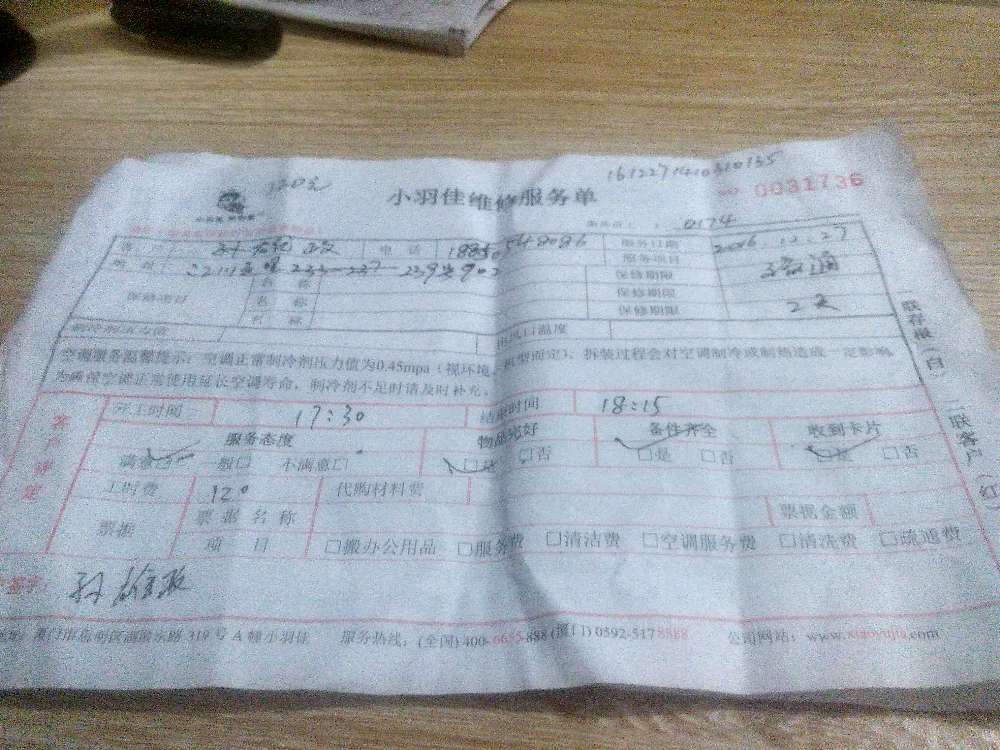 120元
161227140310135
小羽佳维修服务单
NO 0031736
0174
电话 服务日期
服务项目 疏通
名称 保修期限
保修项目 名称 保修期限
名称 保修期限 2天
出风口温度
空调服务温馨提示:空调正常制冷剂压力值为0.45mpa(视环境、机型而定),拆装过程会对空调制冷或制热造成一定影响
为确保空调正常使用延长空调寿命,制冷剂不足时请及时补充。
开工时间 17:30 结束时间 18:15
服务态度 物品完好 备件齐全 收到卡片
满意□ 一般□ 不满意□ □是 □否 □是 □否 □是 □否
工时费 120 代购材料费
票据 票据名称 票据金额
项目 □搬办公用品 □服务费 □清洁费 □空调服务费 □清洗费 □疏通费
客户评定
签字:
319号A幢小羽佳 服务热线:(全国)400-6655-888(厦门)0592-5178888 公司网站:www.xiaoyujia.com
一联存根(白) 二联客户(红)